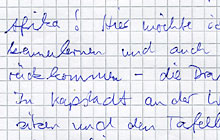 Afrika! Hier möchte i
kennenlernen und auch
rückkommen - die Dra
In Kapstadt an der
sitzen und den Tafell